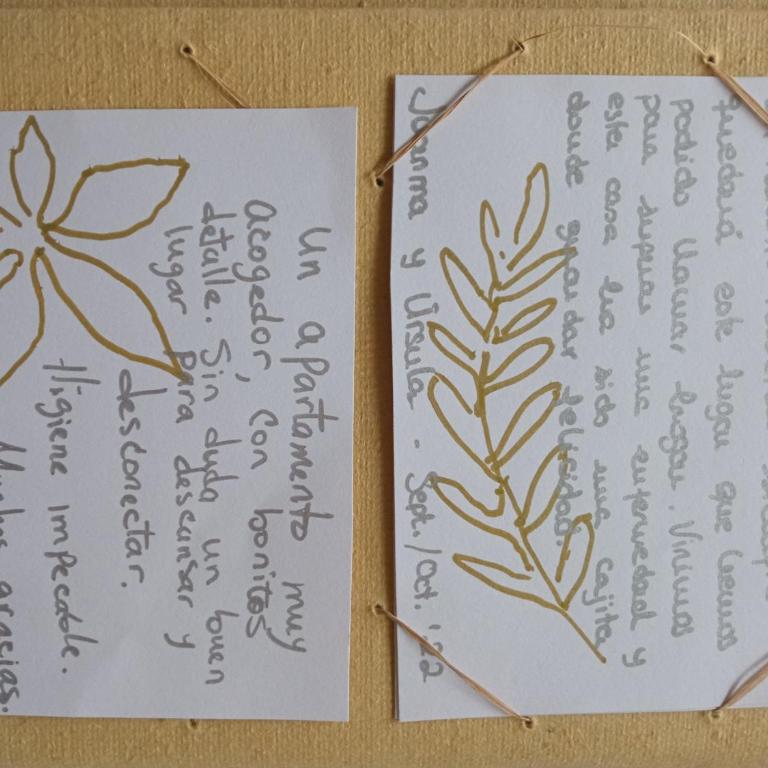 quedará este lugar que hemos
podido llamar hogar. Vinimos
para superar una enfermedad y
esta casa ha sido una cajita
donde guardar felicidad
Juanma y Úrsula - Sept./Oct. '22
Un apartamento muy
acogedor, con bonitos
detalle. Sin duda un buen
lugar para descansar y
desconectar.
Higiene impecable.
Muchas gracias.